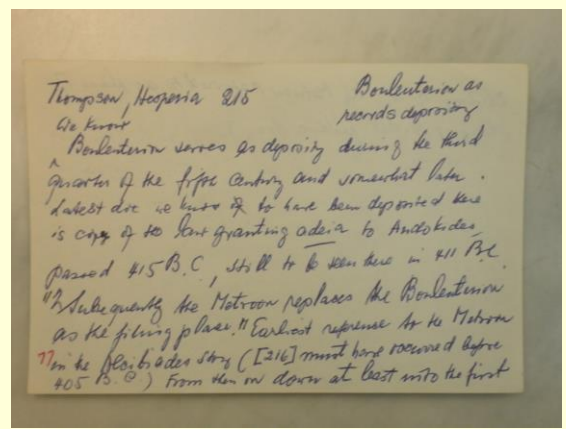 Thompson, Hesperia 215 Bouleuterion as
records depository
We know
Bouleuterion serves as depository during the third
quarter of the fifth century and somewhat later.
Latest doc we know of to have been deposited there
is copy of the law granting adeia to Andokides,
passed 415 B.C., still to be seen there in 411 B.C.
"Subsequently the Metroon replaces the Bouleuterion
as the filing place." Earliest reference to the Metroon
?? in the Alcibiades story ([216] must have occurred before
405 B.C) From then on down at least into the first